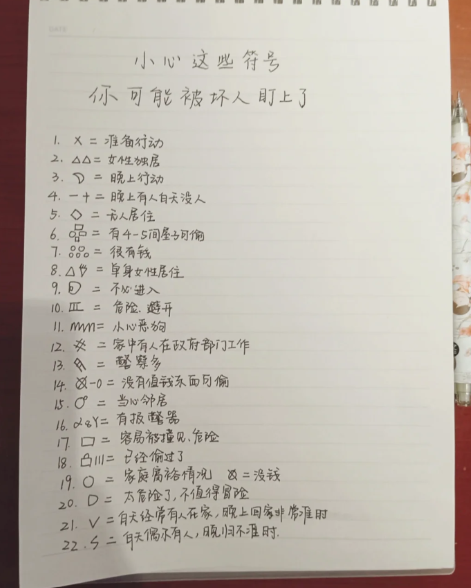 小心这些符号
你可能被坏人盯上了
1. × = 准备行动
2. △△ = 女性独居
3. = 晚上行动
4. 一 + = 晚上有人白天没人
5. ◇ = 无人居住
6. = 有4-5间屋子可偷
7. = 很有钱
8. △ = 单身女性居住
9. = 不必进入
10. = 危险.避开
11. = 小心恶狗
12. = 家中有人在政府部门工作
13. = 警察多
14. -0 = 没有值钱东西可偷
15. = 当心邻居
16. = 有报警器
17. □ = 容易被撞见.危险
18. = 已经偷过了
19. ○ = 家庭富裕情况 = 没钱
20. D = 太危险了,不值得冒险
21. V = 白天经常有人在家,晚上回家非常准时
22. S = 白天偶尔有人,晚归不准时.